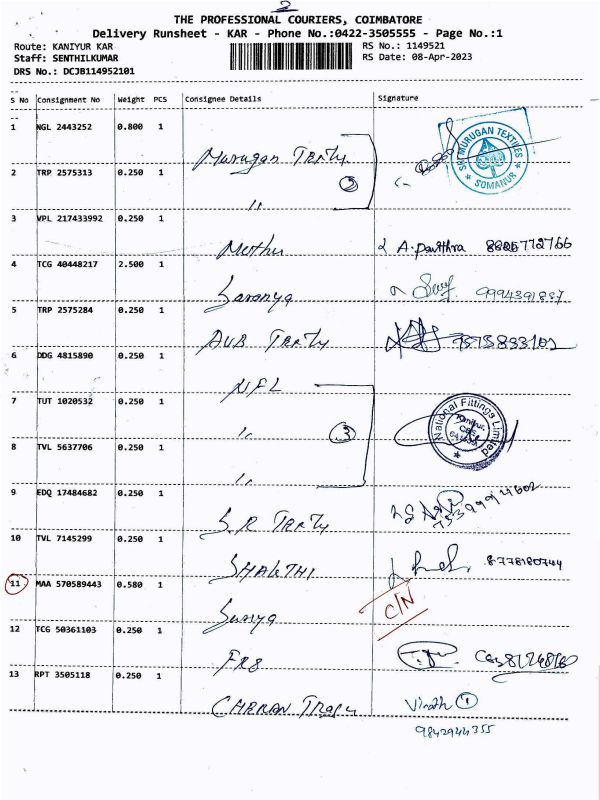 2
THE PROFESSIONAL COURIERS, COIMBATORE
Delivery Runsheet - KAR - Phone No.:0422-3505555 - Page No.:1
Route: KANIYUR KAR
RS No.: 1149521
Staff: SENTHILKUMAR
RS Date: 08-Apr-2023
DRS No.: DCJB114952101
S No Consignment No Weight PCS Consignee Details Signature
1 NGL 2443252 0.800 1
Murugan Textly
SRI MURUGAN TEXTILES
SOMANUR
2 TRP 2575313 0.250 1
2
,,
3 VPL 217433992 0.250 1
Mothu
4 TCG 40448217 2.500 1
Saranya 9994391887
5 TRP 2575284 0.250 1
AUB Textly 7575833102
6 DDG 4815890 0.250 1
NFL
7 TUT 1020532 0.250 1
,, 3
National Fittings Limited
Kaniyur,
8 TVL 5637706 0.250 1
,,
9 EDQ 17484682 0.250 1
S.R Textly
10 TVL 7145299 0.250 1
SHAKTHI 8778180744
11 MAA 570589443 0.580 1
Surya C/N
12 TCG 50361103 0.250 1
FRB
13 RPT 3505118 0.250 1
CHARRAN Vinoth 1
9842944355